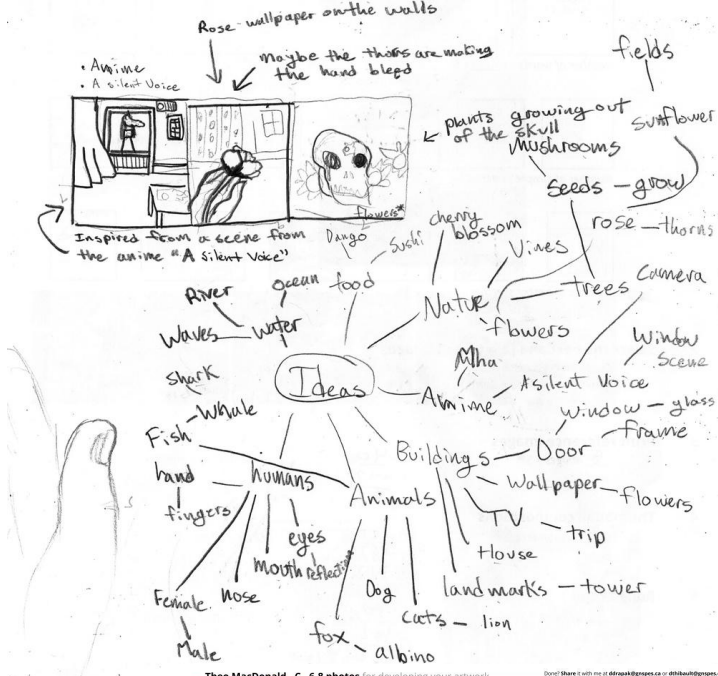 Rose wallpaper on the walls
• Anime
• A silent Voice
Maybe the thorns are making
the hand bleed
plants growing out
of the skull
flowers*
Inspired from a scene from
the anime "A Silent Voice"
fields
Sunflower
Mushrooms
Seeds – grow
rose – thorns
cherry
blossom
Vines
trees
Natur
flowers
Camera
Window
Scene
Dango
Sushi
food
River
Ocean
Waves
Water
Ideas
Mha
Anime
A silent Voice
Shark
Whale
Fish
Buildings
Door
window – glass
frame
Wallpaper – flowers
TV – trip
House
landmarks – tower
hand
fingers
humans
eyes
reflection
mouth
nose
Female
Male
Animals
Dog
cats – lion
fox – albino
Theo MacDonald C 6.8 photos for developing your artwork
Done? Share it with me at ddrapak@gnspes.ca or dthibault@gnspes.